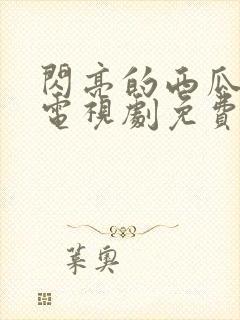 閃亮的西瓜
電視劇免費
葉奧